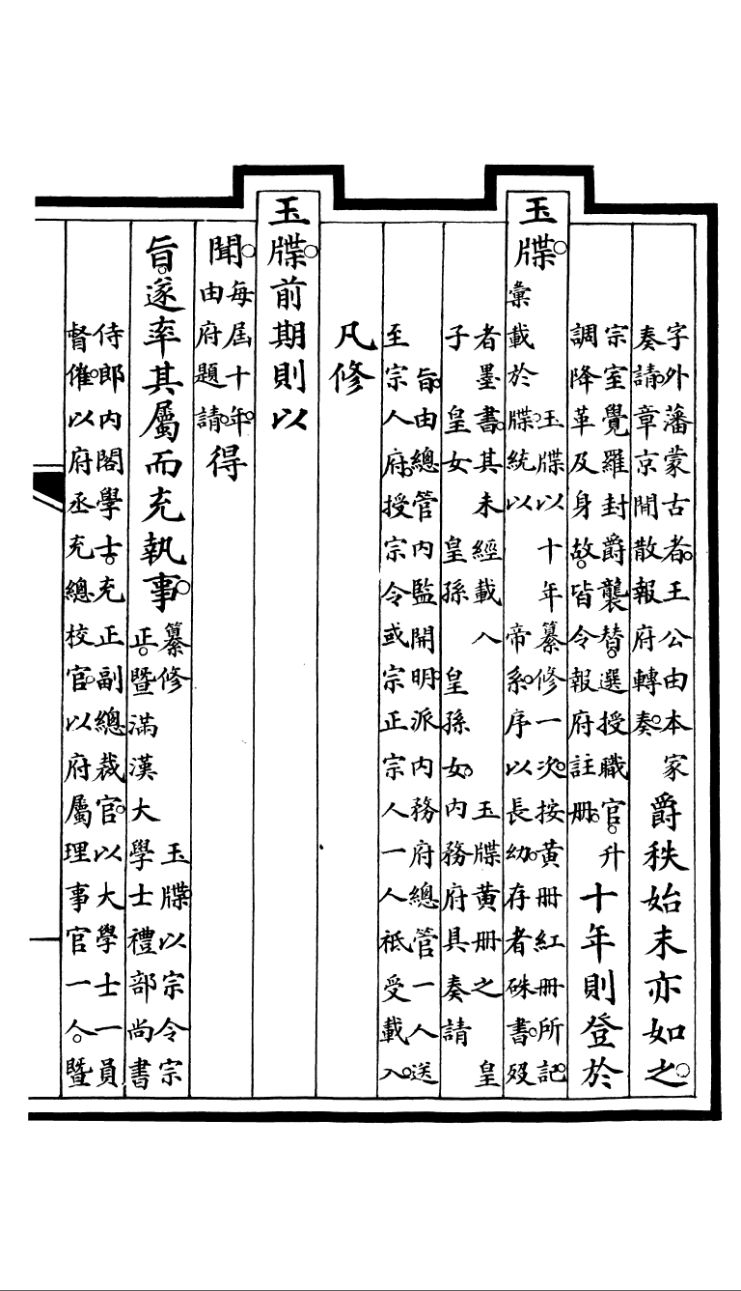 字外藩蒙古者。王公由本家
奏請。章京閒散報府轉奏。
爵秩始末亦如之。
宗室覺羅封爵襲替。選授職官。升
調降革及身故。皆令報府註冊。
十年則登於
玉牒。
玉牒以十年纂修一次。按黃冊紅冊所記。
彙載於牒。統以 帝系。序以長幼。存者硃書。歿
者墨書。其未經載入 玉牒黃冊之 皇
子 皇女 皇孫 皇孫女。內務府具奏請
旨。由總管內監開明。派內務府總管一人。送
至宗人府。授宗令或宗正宗人一人祗受載入。
凡修
玉牒。前期則以
聞。
每屆十年。
由府題請。
得
旨。遂率其屬而充執事。
纂修 玉牒。以宗令宗
正。暨滿漢大學士禮部尚書
侍郎內閣學士。充正副總裁官。以大學士一員
督催。以府丞充總校官。以府屬理事官一人。暨